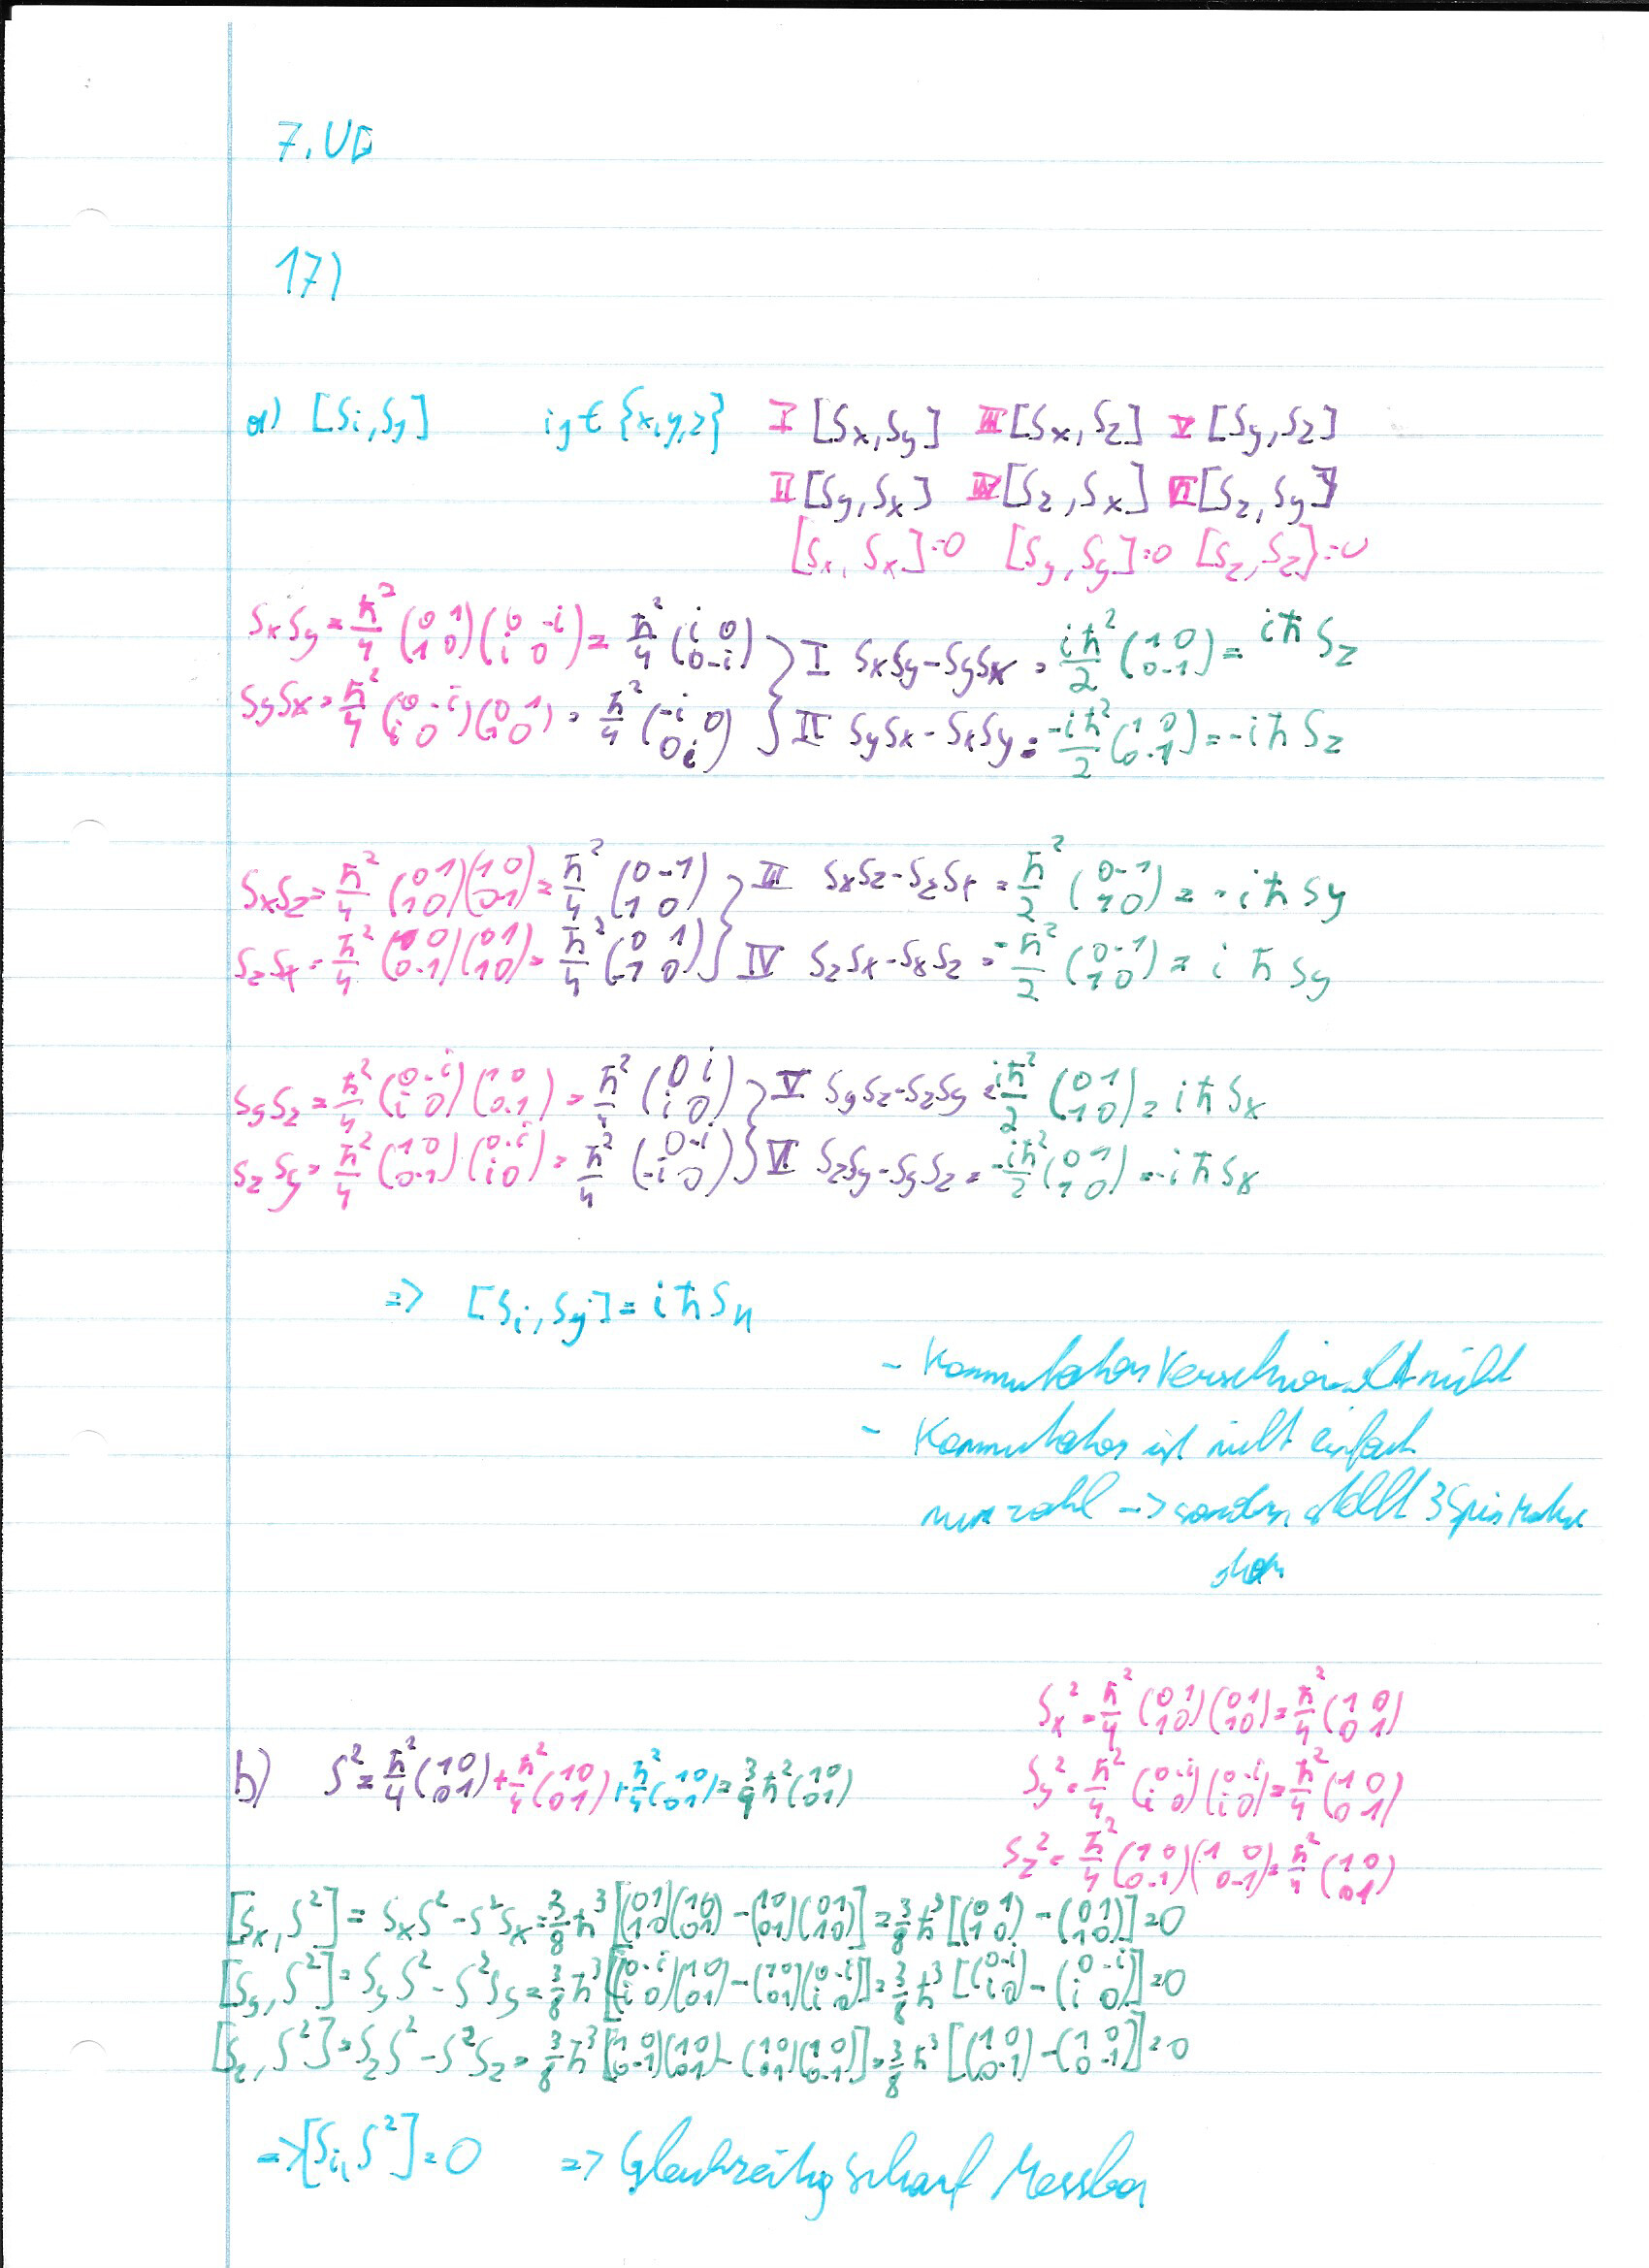 7. UB
17)
a) [Si, Sj] i,j ∈ {x,y,z} I [Sx, Sy] III [Sx, Sz] V [Sy, Sz]
II [Sy, Sx] IV [Sz, Sx] VI [Sz, Sy]
[Sx, Sx]=0 [Sy, Sy]=0 [Sz, Sz]=0
SxSy = ħ²/4 (0 1; 1 0)(0 -i; i 0) = ħ²/4 (i 0; 0 -i) } I SxSy - SySx = iħ²/2 (1 0; 0 -1) = iħ Sz
SySx = ħ²/4 (0 -i; i 0)(0 1; 1 0) = ħ²/4 (-i 0; 0 i) } II SySx - SxSy = -iħ²/2 (1 0; 0 -1) = -iħ Sz
SxSz = ħ²/4 (0 1; 1 0)(1 0; 0 -1) = ħ²/4 (0 -1; 1 0) } III SxSz - SzSx = ħ²/2 (0 -1; 1 0) = -iħ Sy
SzSx = ħ²/4 (1 0; 0 -1)(0 1; 1 0) = ħ²/4 (0 1; -1 0) } IV SzSx - SxSz = -ħ²/2 (0 -1; 1 0) = iħ Sy
SySz = ħ²/4 (0 -i; i 0)(1 0; 0 -1) = ħ²/4 (0 i; i 0) } V SySz - SzSy = iħ²/2 (0 1; 1 0) = iħ Sx
SzSy = ħ²/4 (1 0; 0 -1)(0 -i; i 0) = ħ²/4 (0 -i; -i 0) } VI SzSy - SySz = -iħ²/2 (0 1; 1 0) = -iħ Sx
=> [Si, Sj] = iħ Sk
- Kommutator verschwindet nicht
- Kommutator ist nicht einfach
nur zahl -> sondern stellt 3 Spin
dar
Sx² = ħ²/4 (0 1; 1 0)(0 1; 1 0) = ħ²/4 (1 0; 0 1)
b) S² = ħ²/4 (1 0; 0 1) + ħ²/4 (1 0; 0 1) + ħ²/4 (1 0; 0 1) = 3/4 ħ² (1 0; 0 1)
Sy² = ħ²/4 (0 -i; i 0)(0 -i; i 0) = ħ²/4 (1 0; 0 1)
Sz² = ħ²/4 (1 0; 0 -1)(1 0; 0 -1) = ħ²/4 (1 0; 0 1)
[Sx, S²] = SxS² - S²Sx = 3/8 ħ³ [(0 1; 1 0)(1 0; 0 1) - (1 0; 0 1)(0 1; 1 0)] = 3/8 ħ³ [(0 1; 1 0) - (0 1; 1 0)] = 0
[Sy, S²] = SyS² - S²Sy = 3/8 ħ³ [(0 -i; i 0)(1 0; 0 1) - (1 0; 0 1)(0 -i; i 0)] = 3/8 ħ³ [(0 -i; i 0) - (0 -i; i 0)] = 0
[Sz, S²] = SzS² - S²Sz = 3/8 ħ³ [(1 0; 0 -1)(1 0; 0 1) - (1 0; 0 1)(1 0; 0 -1)] = 3/8 ħ³ [(1 0; 0 -1) - (1 0; 0 -1)] = 0
=> [Si, S²] = 0 => Gleichzeitig scharf Messbar